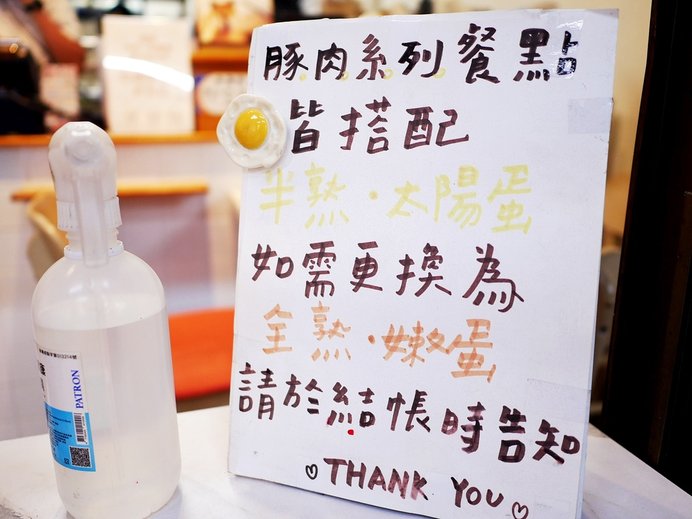 豚肉系列餐點
皆搭配
半熟·太陽蛋
如需更換為
全熟·嫩蛋
請於結帳時告知
♡THANK YOU♡
PATRON